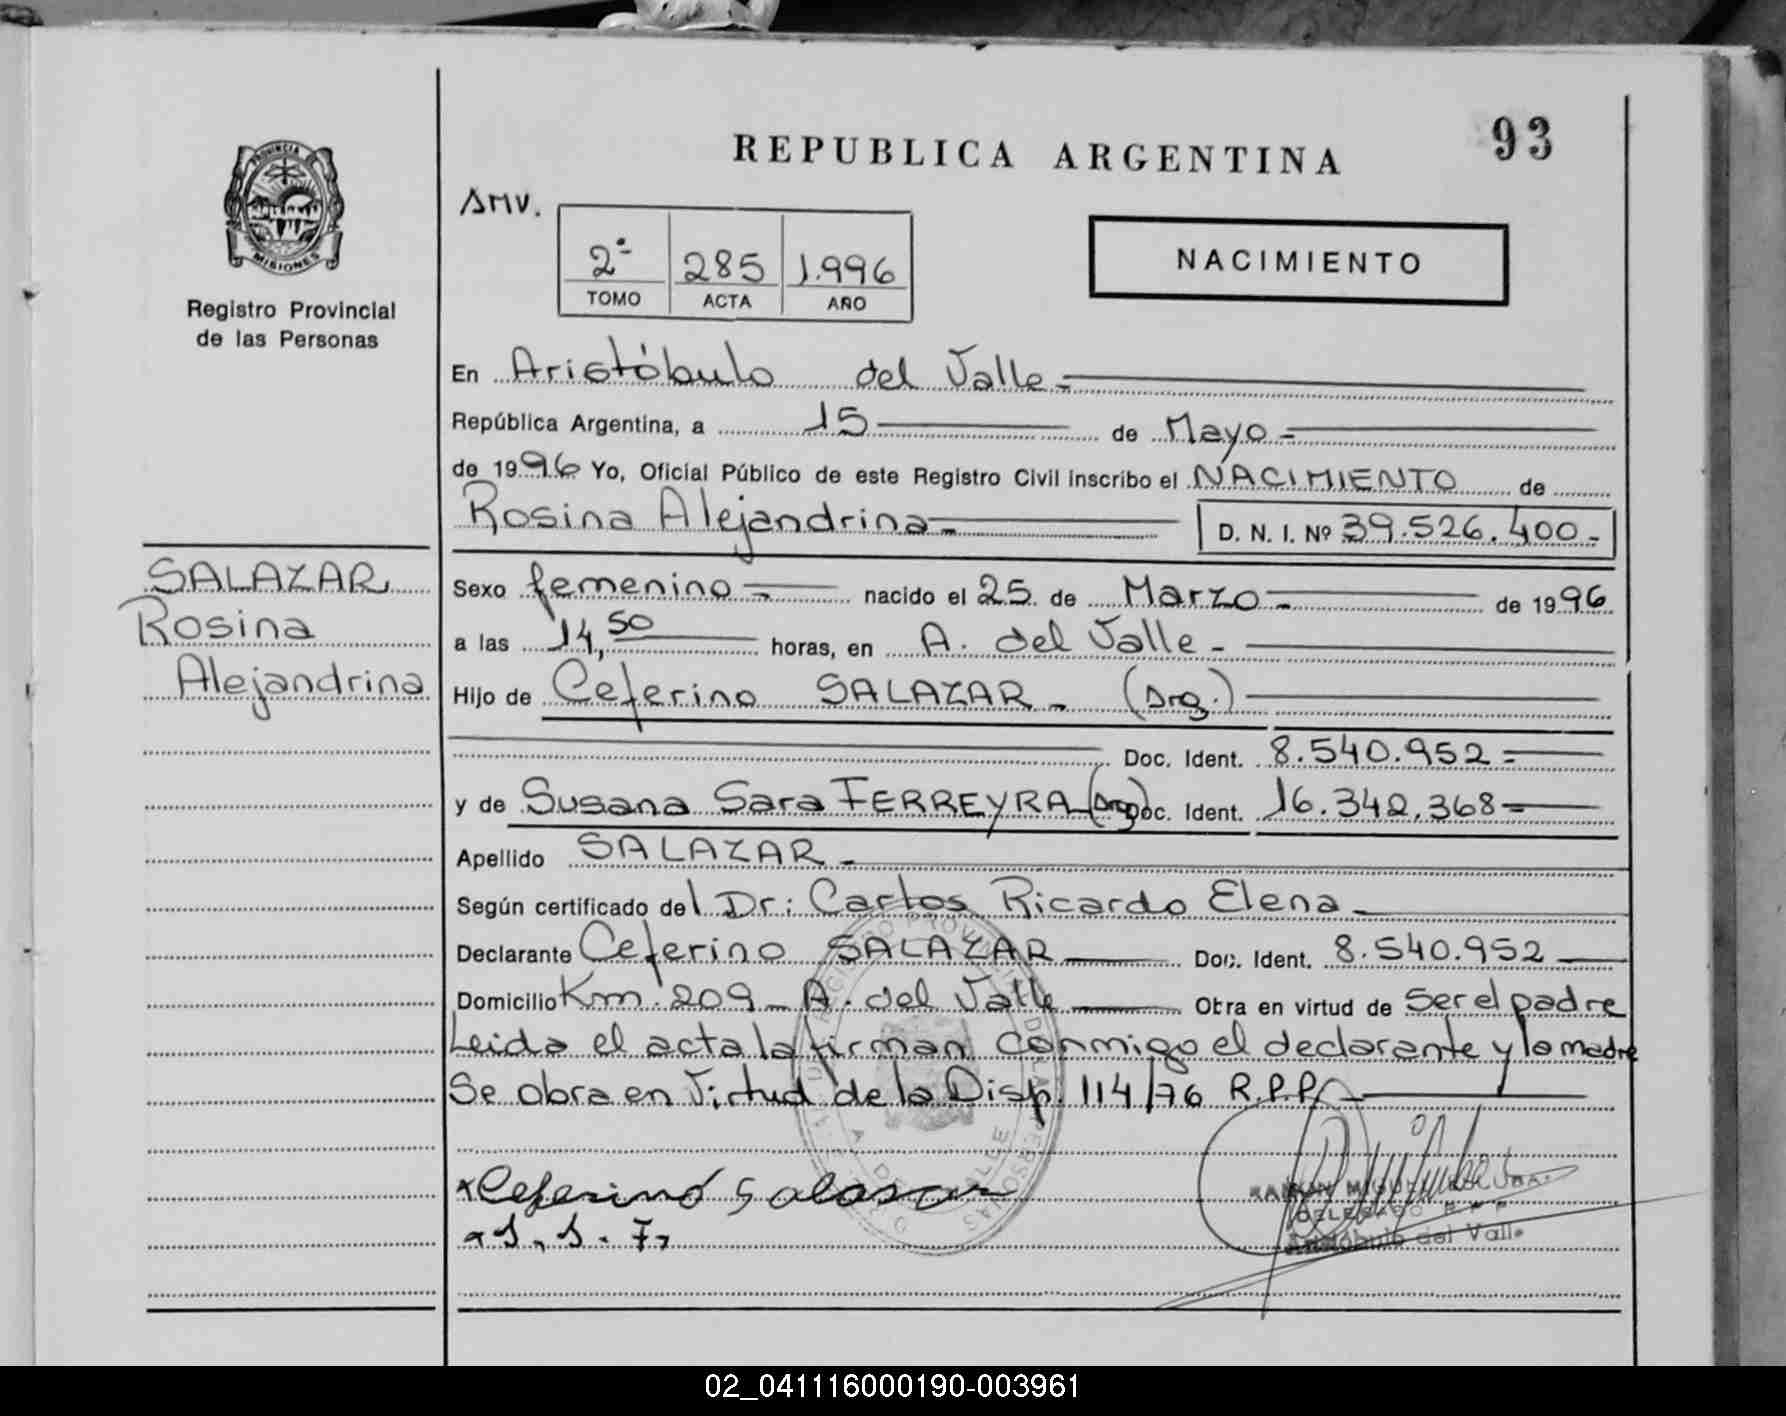 PROVINCIA DE
MISIONES
Registro Provincial
de las Personas
REPUBLICA ARGENTINA
93
AMV.
2º 285 1.996
TOMO ACTA AÑO
NACIMIENTO
En Aristóbulo del Valle.-
República Argentina, a 15 de Mayo.-
de 1996 Yo, Oficial Público de este Registro Civil inscribo el NACIMIENTO de
Rosina Alejandrina.- D. N. I. Nº 39.526.400.-
SALAZAR,
Rosina
Alejandrina
Sexo femenino.- nacido el 25 de Marzo.- de 1996
a las 14,50 horas, en A. del Valle.-
Hijo de Ceferino SALAZAR.- (Arg.)
Doc. Ident. 8.540.952.-
y de Susana Sara FERREYRA (Arg) Doc. Ident. 16.342.368.-
Apellido SALAZAR.-
Según certificado del Dr: Carlos Ricardo Elena.-
Declarante Ceferino SALAZAR Doc. Ident. 8.540.952
Domicilio Km. 209 - A. del Valle Obra en virtud de Ser el padre
Leida el acta la firman conmigo el declarante y la madre
Se obra en Virtud de la Disp. 114/76 R.P.P.-
x Ceferino Salasar
x S. S. F,
DELEGADO R P P
Aristóbulo del Valle
02_041116000190-003961